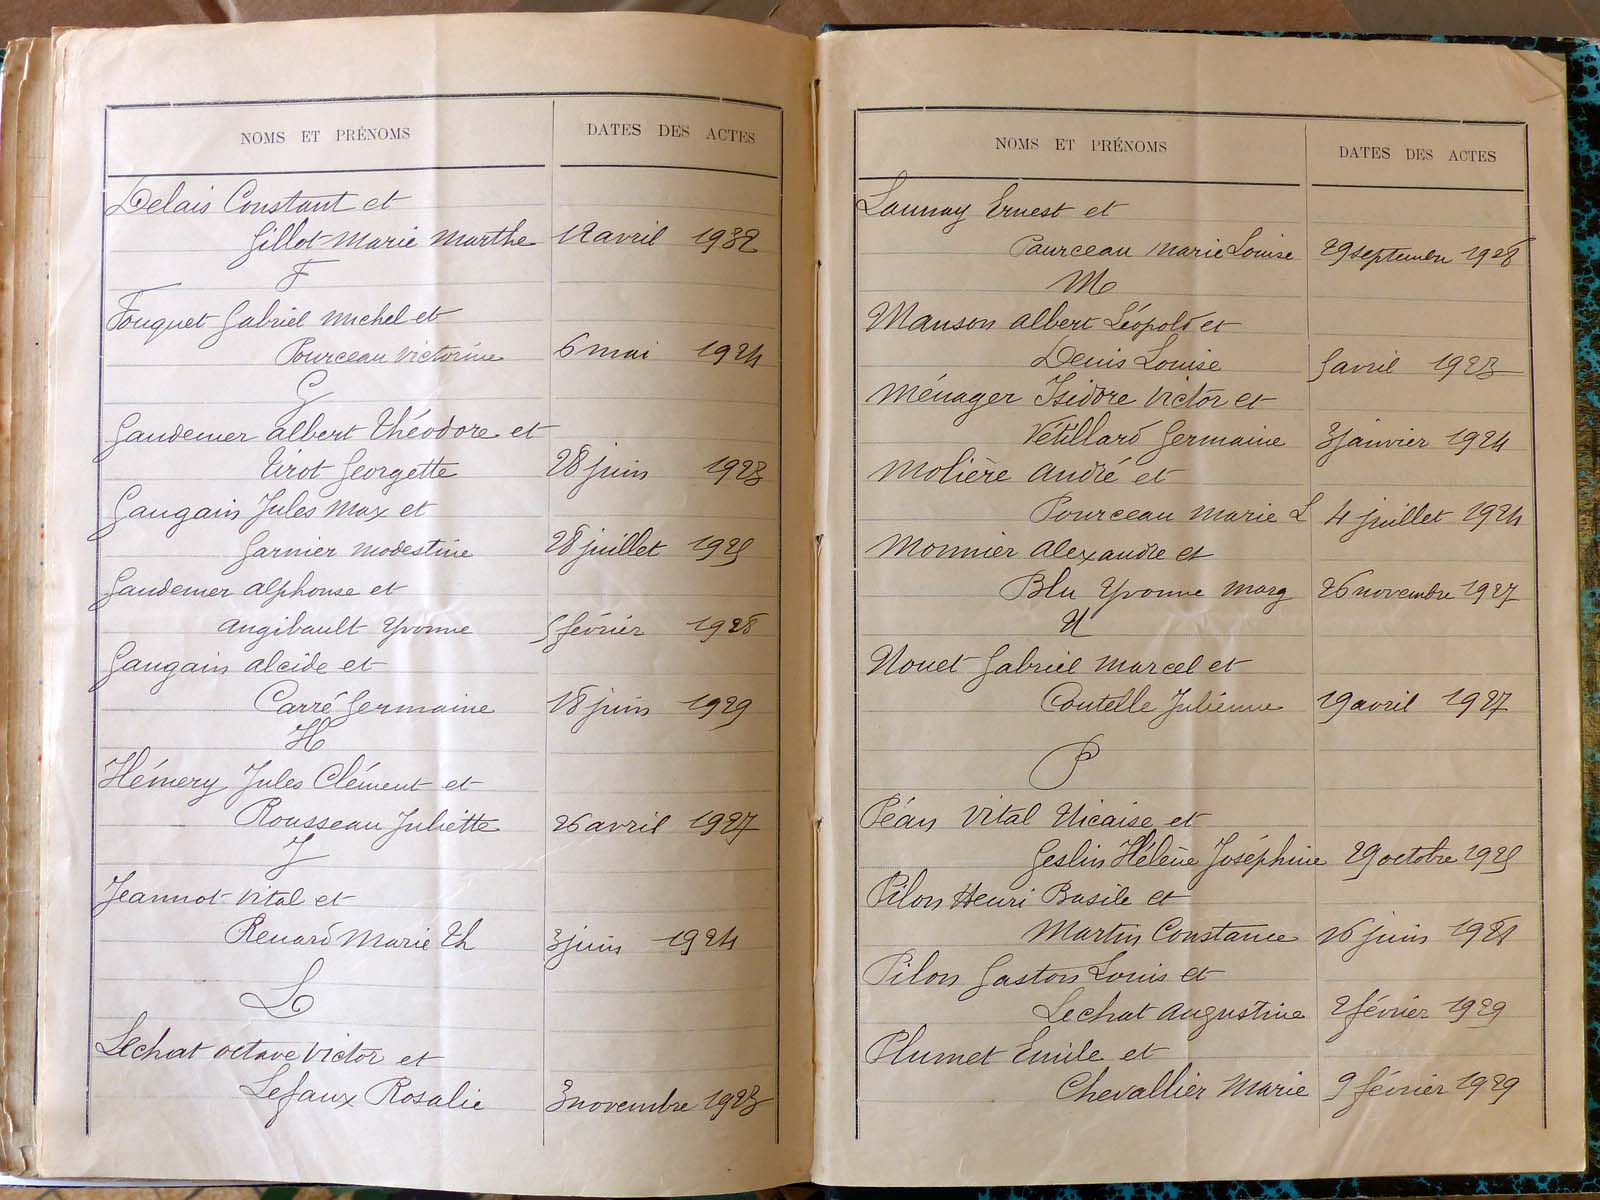 NOMS ET PRÉNOMS DATES DES ACTES
Delais Constant et
Gillot Marie Marthe 12 avril 1932
F
Fouquet Gabriel Michel et
Pourceau Victorine 6 mai 1924
G
Gaudemer Albert Théodore et
Tirot Georgette 28 juin 1923
Gaugain Jules Max et
Garnier Modestine 28 juillet 1925
Gaudemer Alphonse et
Angibault Yvonne 5 février 1928
Gaugain Alcide et
Carré Germaine 18 juin 1929
H
Hémery Jules Clément et
Rousseau Juliette 26 avril 1927
J
Jeannot Vital et
Renard Marie Th 3 juin 1924
L
Lechat Octave Victor et
Lefaux Rosalie 3 novembre 1923
NOMS ET PRÉNOMS DATES DES ACTES
Launay Ernest et
Pourceau Marie Louise 29 septembre 1928
M
Manson Albert Léopold et
Denis Louise 5 avril 1923
Ménager Isidore Victor et
Vétillard Germaine 3 janvier 1924
Molière André et
Pourceau Marie L 4 juillet 1924
Monnier Alexandre et
Blu Yvonne Marg 26 novembre 1927
N
Nouet Gabriel Marcel et
Coutelle Julienne 19 avril 1927
P
Péan Vital Nicaise et
Geslin Hélène Joséphine 29 octobre 1925
Pilon Henri Basile et
Martin Constance 16 juin 1928
Pilon Gaston Louis et
Lechat Augustine 2 février 1929
Plumet Emile et
Chevallier Marie 9 février 1929